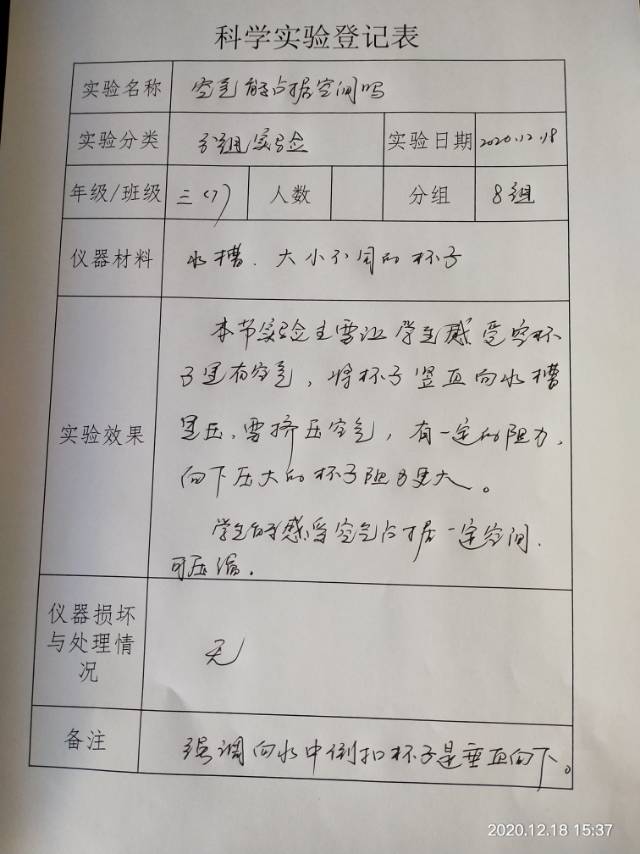 科学实验登记表
实验名称 空气能占据空间吗
实验分类 分组实验 实验日期 2020.12.18
年级/班级 三(7) 人数 分组 8组
仪器材料 水槽、大小不同的杯子
本节实验主要让学生感受空杯
子里有空气，将杯子竖直向水槽
实验效果 里压，需挤压空气，有一定的阻力，
向下压大的杯子阻力更大。
学生能感受空气占据一定空间，
可压缩。
仪器损坏
与处理情
况 无
备注 强调向水中倒扣杯子是垂直向下。
2020.12.18 15:37